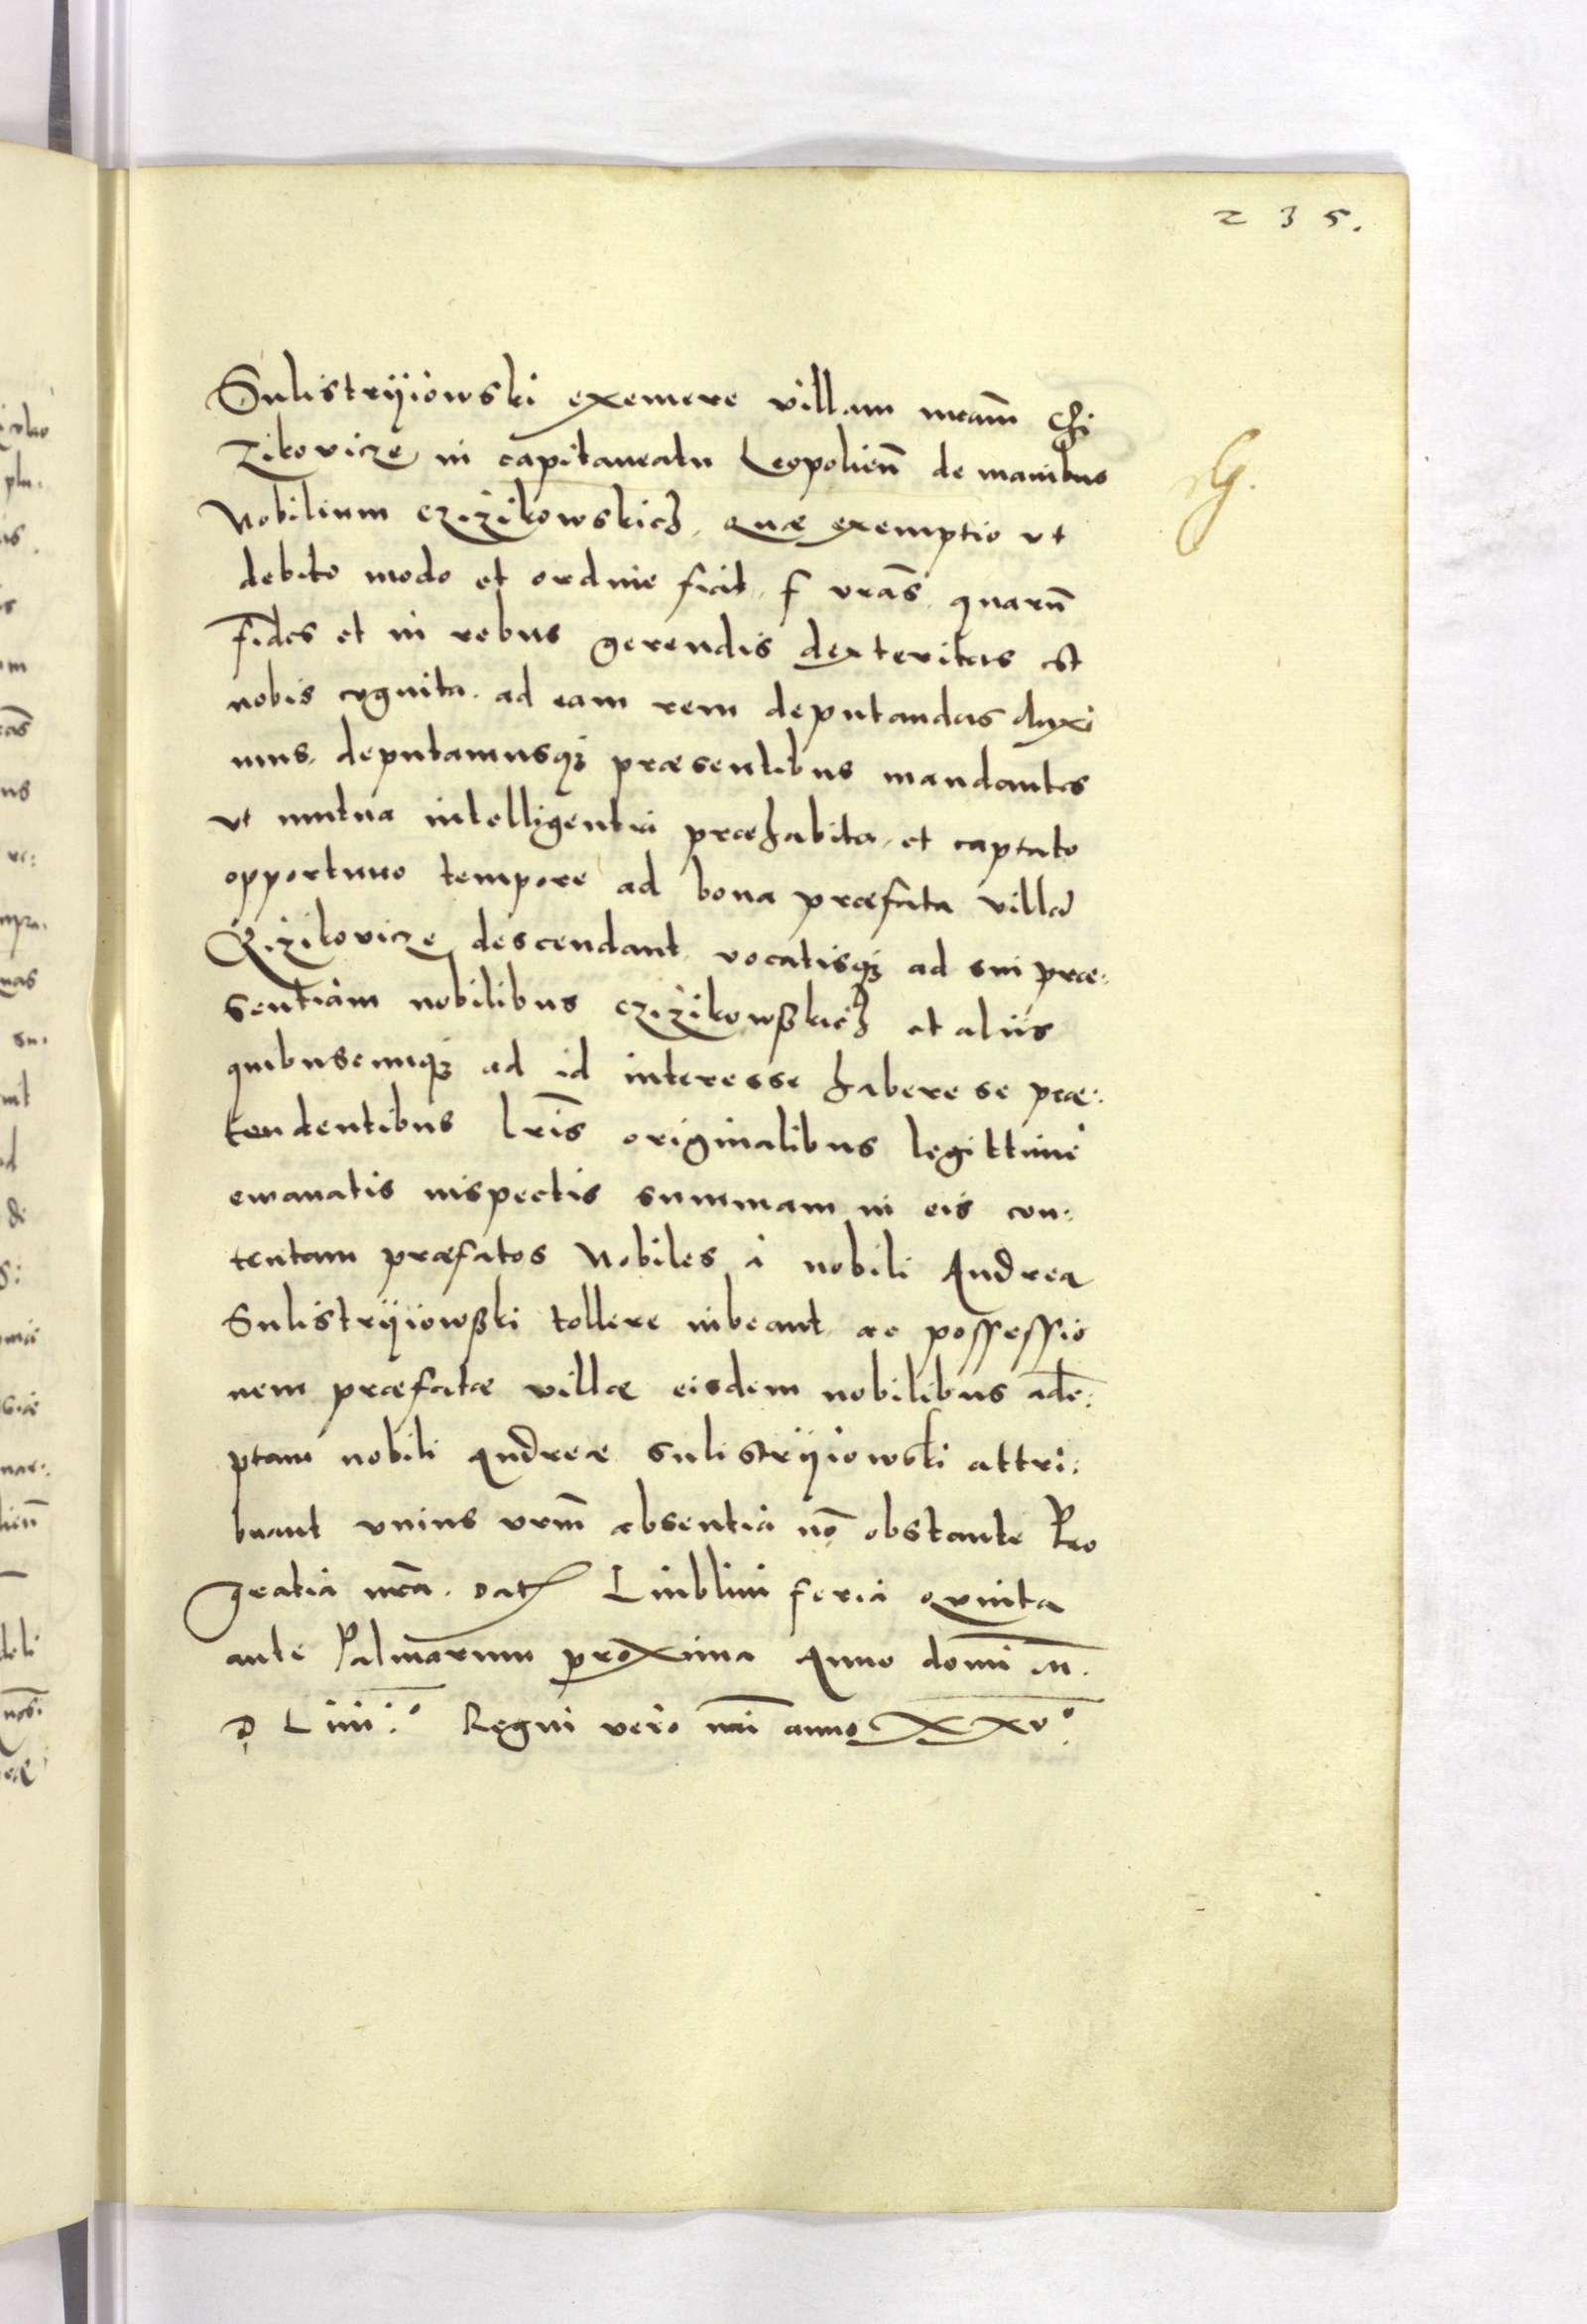 235.
Sulistryiowski exemere villam nr̃am Chi
zikovicze in capitaneatu Leopolien̄ de manibus
Nobilium Czizikowskich, quæ exemptio ut
debito modo et ordine fiat, f vr̃as, quarū
fides et in rebus gerendis dexteritas est
nobis cognita, ad eam rem deputandas duxi
mus, deputamusq₃ præsentibus mandantes
ut mutua intelligentia præhabita, et captato
opportuno tempore ad bona præfata villæ
Czizikovicze descendant, vocatisq₃ ad sui præ:
sentiam nobilibus Czizikowßkich et aliis
quibuscunq₃ ad id interesse habere se præ:
tendentibus lr̃is originalibus legittime
emanatis inspectis summam in eis con:
tentam præfatos Nobiles à nobili Andrea
Sulistryiowßki tollere iubeant, ac possessio
nem præfatæ villæ eisdem nobilibus ade:
ptam nobili Andreæ Sulistryiowski attri:
buant unius vr̃m absentia nō obstante Pro
gratia nr̃a. Dat Liublini feria quinta
ante Palmarum proxima Anno domi M.
D Liiii:º Regni vero nr̃i anno XXV.º